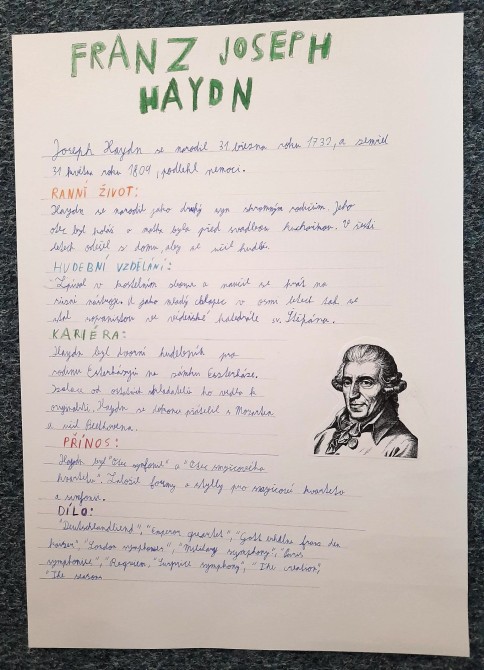 FRANZ JOSEPH
HAYDN
Joseph Haydn se narodil 31. března roku 1732, a zemřel
31. května roku 1809, podlehl nemoci.
RANNÍ ŽIVOT:
Haydn se narodil jako druhý syn skromným rodičům. Jeho
otec byl kolář a matka byla před svatbou kuchařkou. V šesti
letech odešel z domu, aby se učil hudbě.
HUDEBNÍ VZDĚLÁNÍ:
Zpíval v kostelním sboru a naučil se hrát na
různé nástroje. A jako mladý chlapec v osmi letech tak se
stal sopranistou ve vídeňské katedrále sv. Štěpána.
KARIÉRA:
Haydn byl dvorní hudebník pro
rodinu Esterházyů na zámku Eszterháze.
Izolace od ostatních skladatelů ho vedla k
originalitě. Haydn se také přátelil s Mozartem
a učil Beethovena.
PŘÍNOS:
Haydn byl "Otec symfonie" a "Otec smyčcového
kvartetu". Založil formy a styly pro smyčcové kvarteto
a symfonie.
DÍLO:
"Deutschlandlied", "Emperor quartet", "Gott erhalte franz den
kaiser", "London symphonies", "Military symphony", "Paris
symphonies", "Requiem, "Surprise symphony", "The creation",
"The season